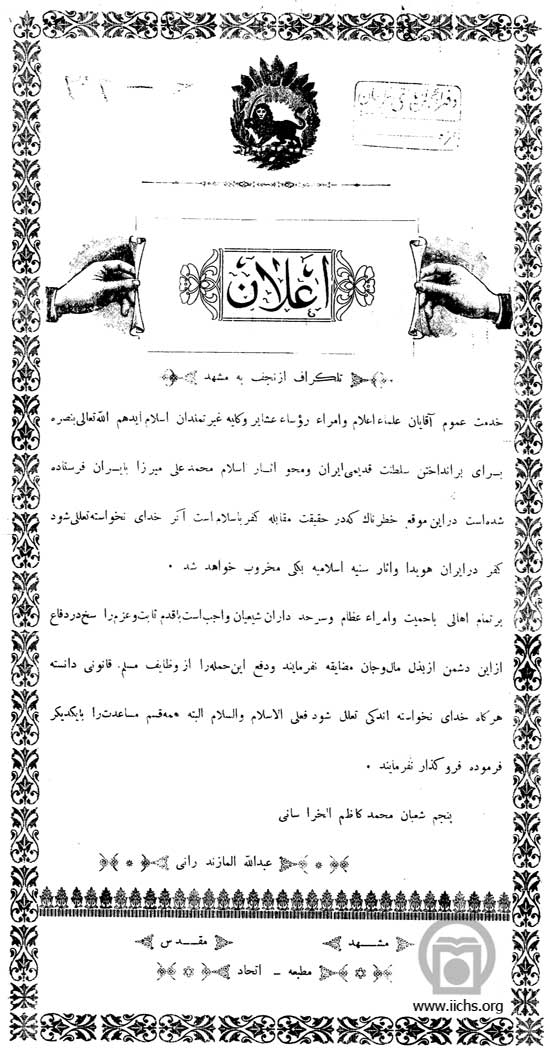 اعلان
تلکراف از نجف به مشهد
خدمت عموم آقایان علماء اعلام وامراء رؤساء عشایر وکلیه غیرتمندان اسلام ایدهم الله تعالی بنصره
برای برانداختن سلطنت قدیمی ایران ومحو اثار اسلام محمد علی میرزا بایران فرستاده
شده است دراین موقع خطرناك که در حقیقت مقابله کفر باسلام است آکر خدای نخواسته تعلل شود
کفر در ایران هویدا واثار سنیه اسلامیه بکلی مخروب خواهد شد .
برتمام اهالی باحمیت وامراء عظام وسرحد داران شیعیان واجب است باقدم ثابت وعزم راسخ در دفاع
از این دشمن از بذل مال وجان مضایقه نفرمایند ودفع این حمله را از وظایف مسلم قانونی دانسته
هرکاه خدای نخواسته اندکی تعلل شود فعلی الاسلام والسلام البته همه قسم مساعدت را بایکدیکر
فرموده فروکذار نفرمایند .
پنجم شعبان محمد کاظم الخراسانی
عبدالله المازندرانی
مشهد مقدس
مطبعه - اتحاد
www.iichs.org